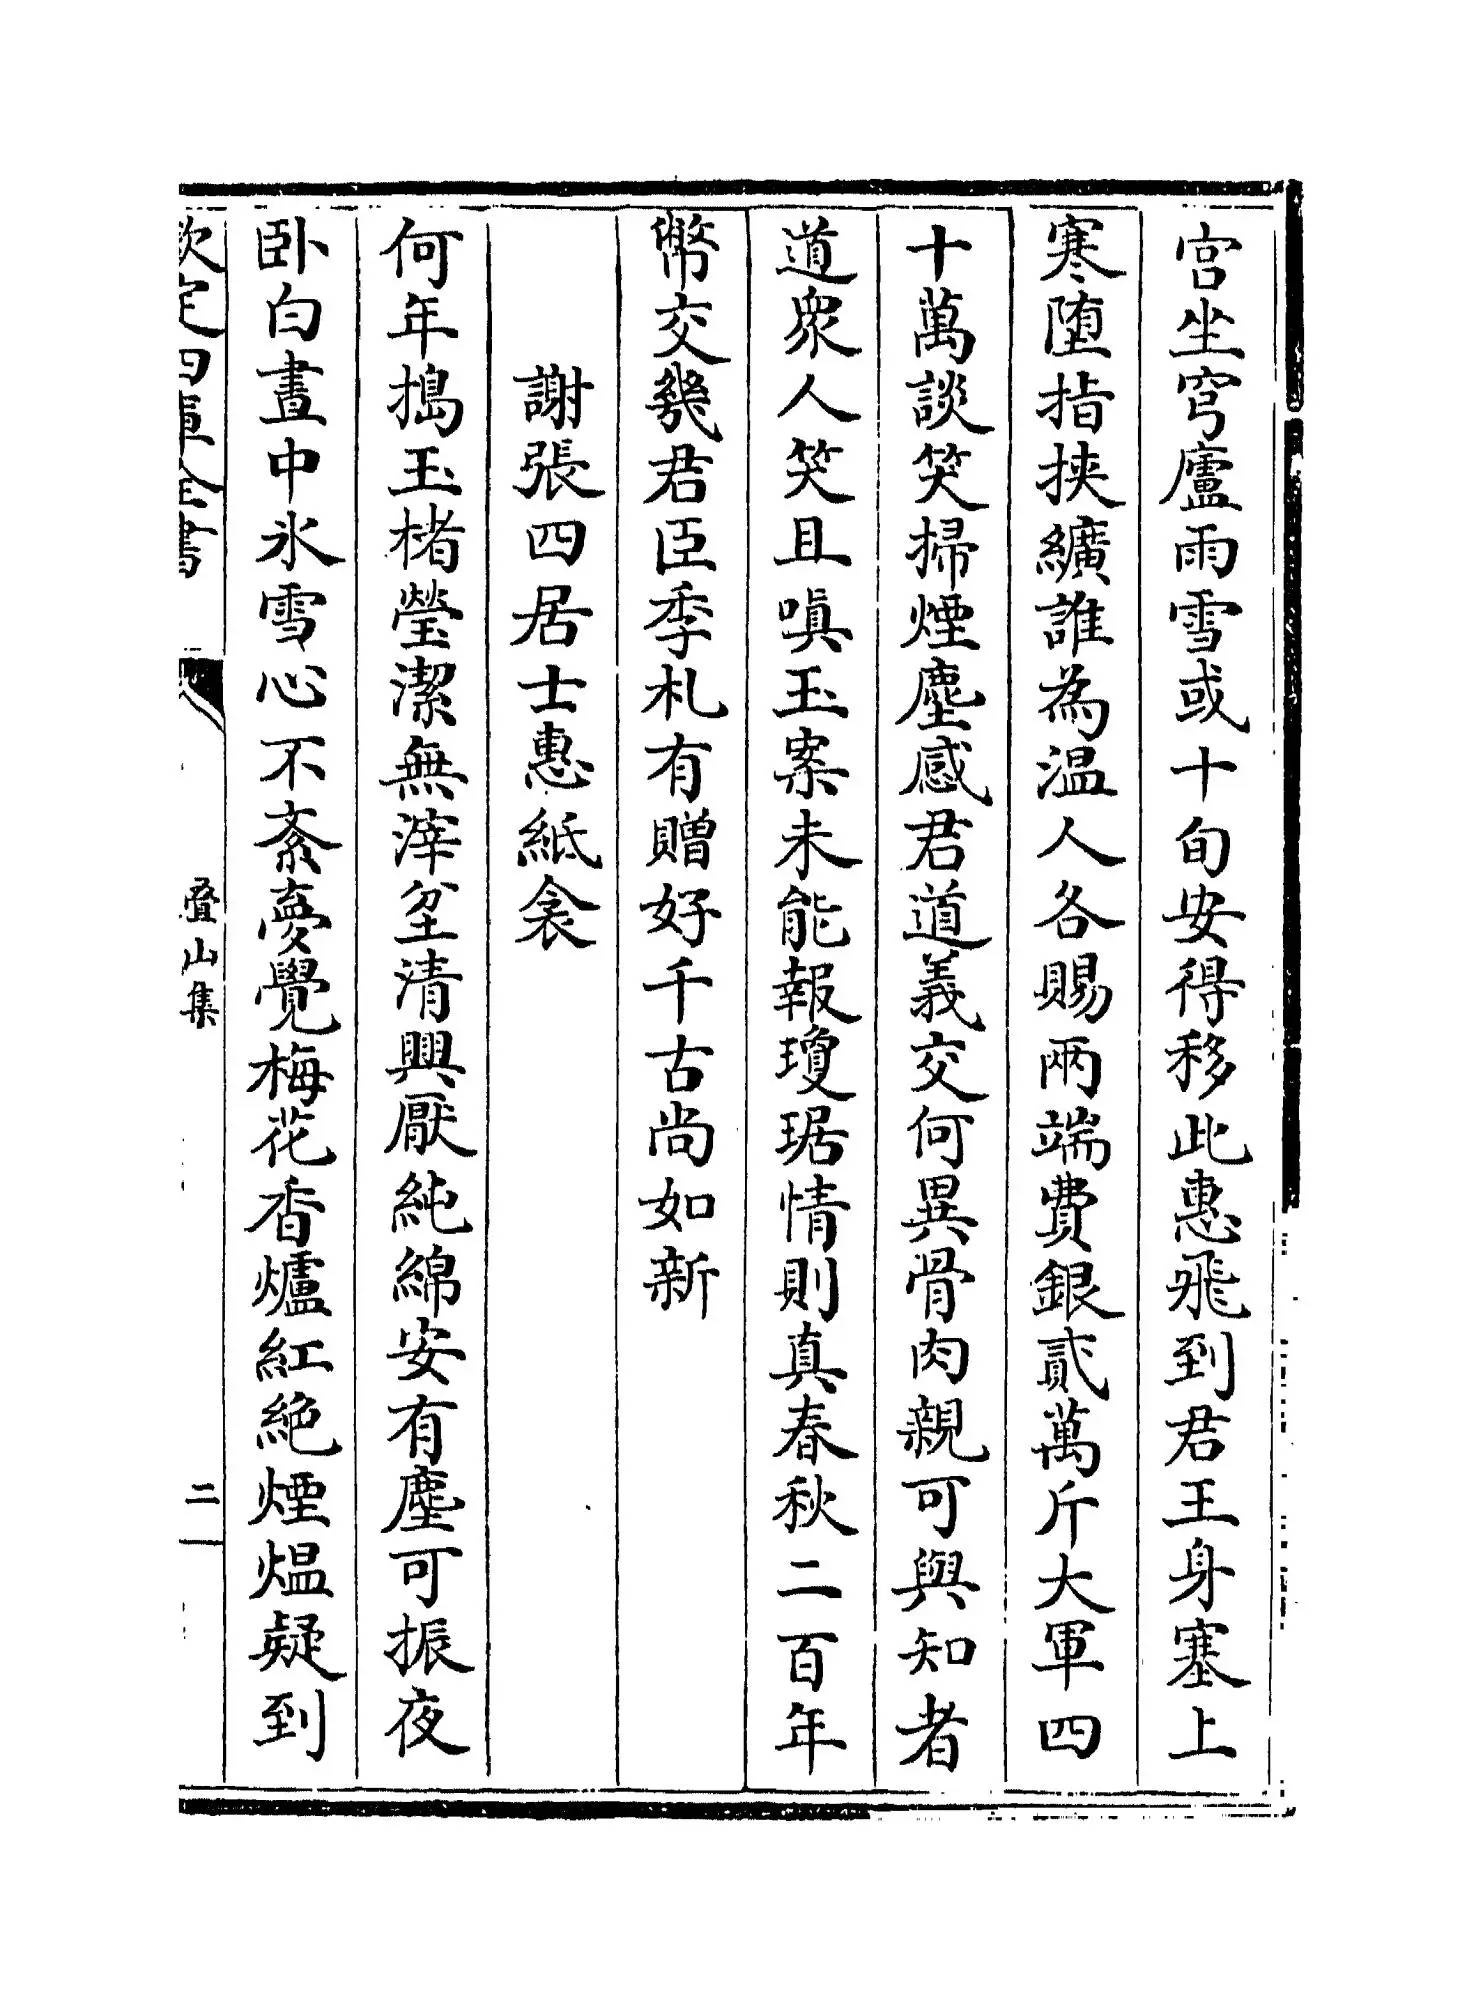 宫坐穹廬雨雪或十旬安得移此惠飛到君王身塞上
寒堕指挾纊誰為温人各賜兩端費銀貳萬斤大軍四
十萬談笑掃煙塵感君道義交何異骨肉親可與知者
道衆人笑且嗔玉案未能報瓊琚情則真春秋二百年
幣交幾君臣季札有贈好千古尚如新
謝張四居士惠紙衾
何年搗玉楮瑩潔無滓坌清興厭純綿安有塵可振夜
卧白晝中氷雪心不紊夢覺梅花香爐紅絶煙熅疑到
欽定四庫全書
疊山集
二